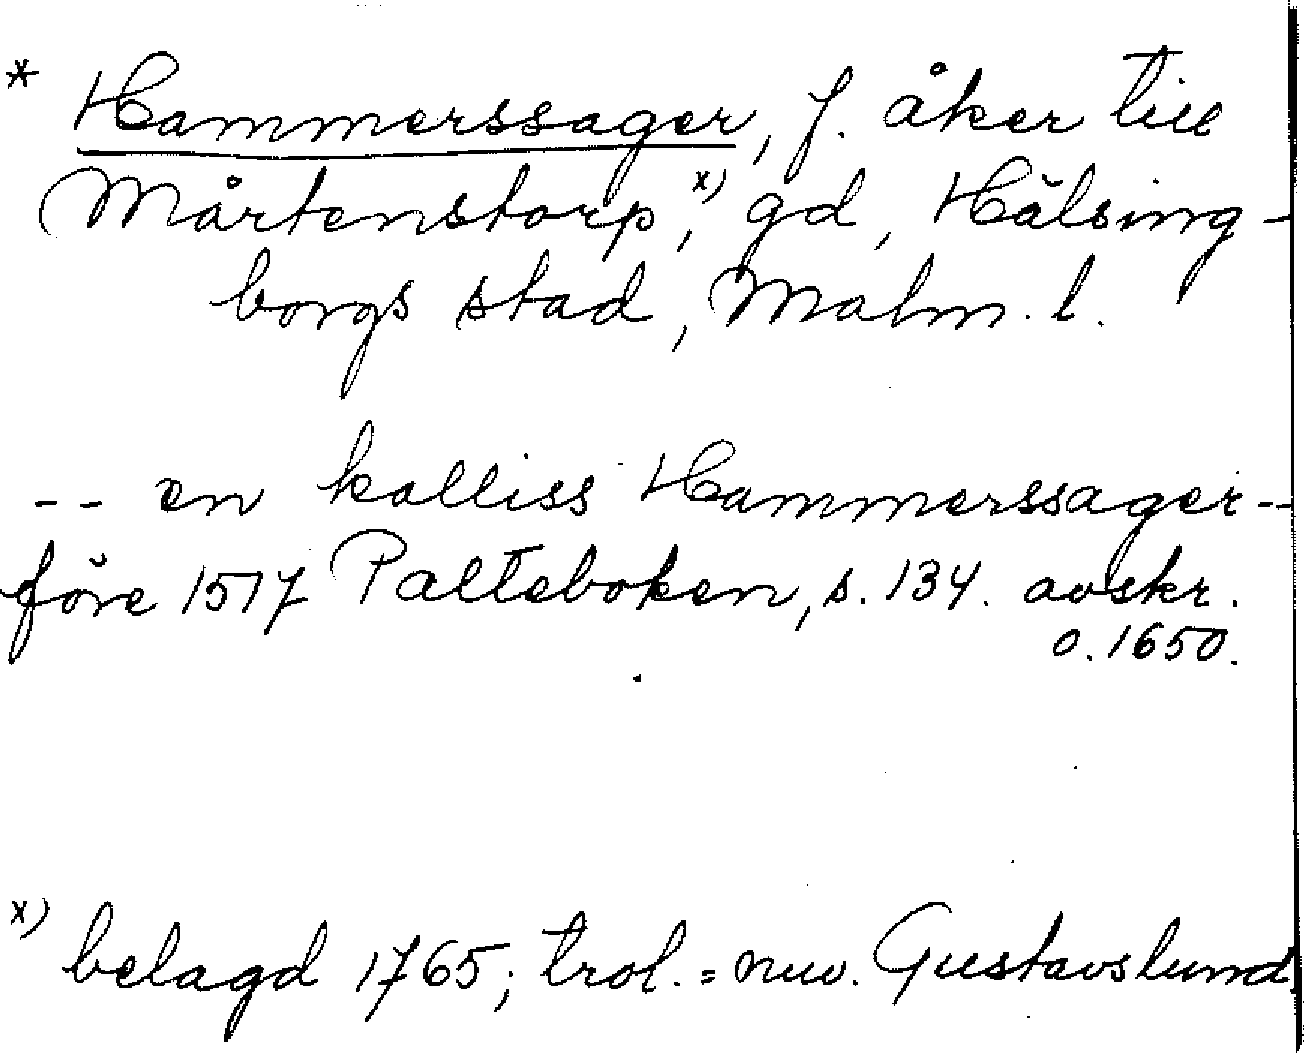 * Hammerssager, f. åker till
Mårtenstorp,x) gd, Hälsing-
borgs stad, Malm. l.
-- en kalliss Hammerssager --
före 1517 Palteboken, s. 134. avskr.
o. 1650.
x) belagd 1765; trol. = nuv. Gustavslund.